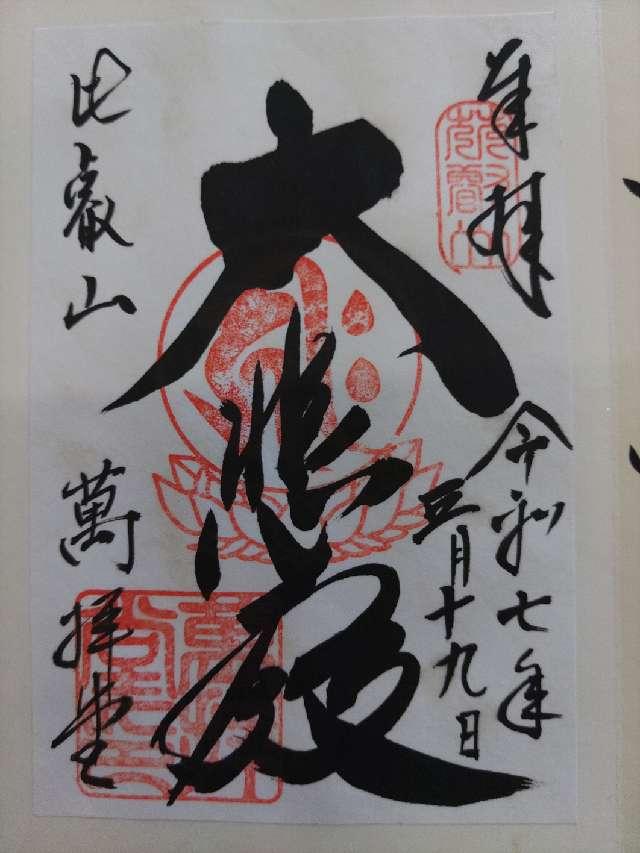 奉拝
令和七年
五月十九日
大悲殿
比叡山
萬拝堂